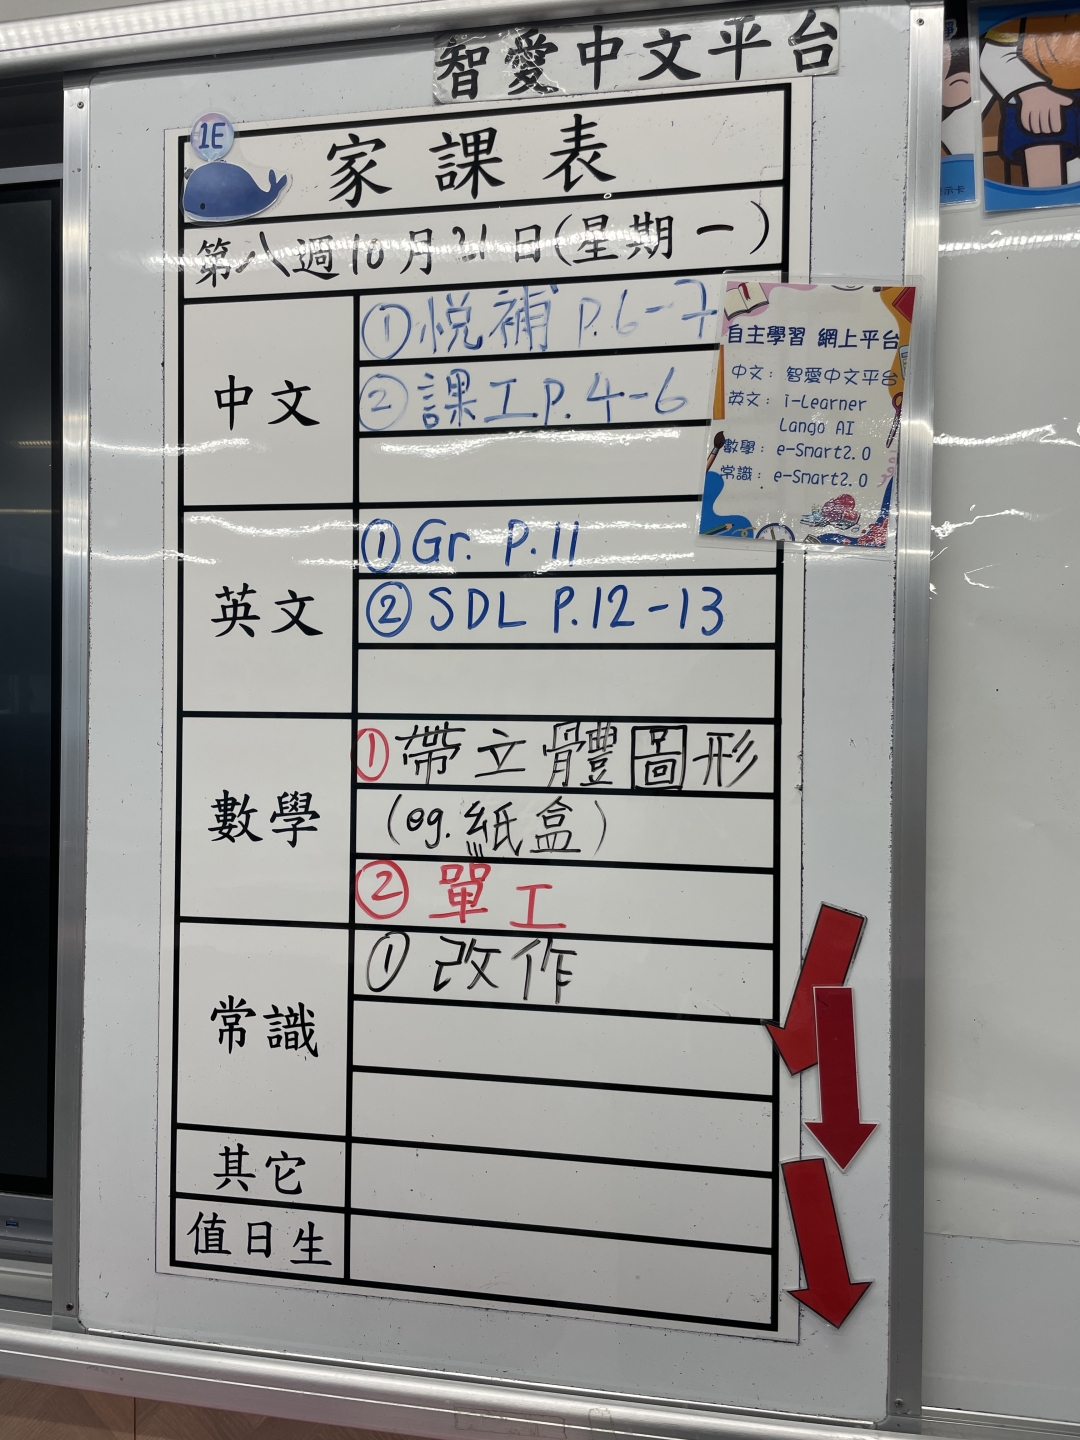 智愛中文平台
1E
家課表
第八週10月21日(星期一)
中文
①悦補 P.6-7
②課工P.4-6
英文
①Gr. P.11
②SDL P.12-13
數學
①帶立體圖形
(eg.紙盒)
②單工
常識
①改作
其它
值日生
自主學習 網上平台
中文：智愛中文平台
英文：i-Learner
Lango AI
數學：e-Smart2.0
常識：e-Smart2.0
示卡